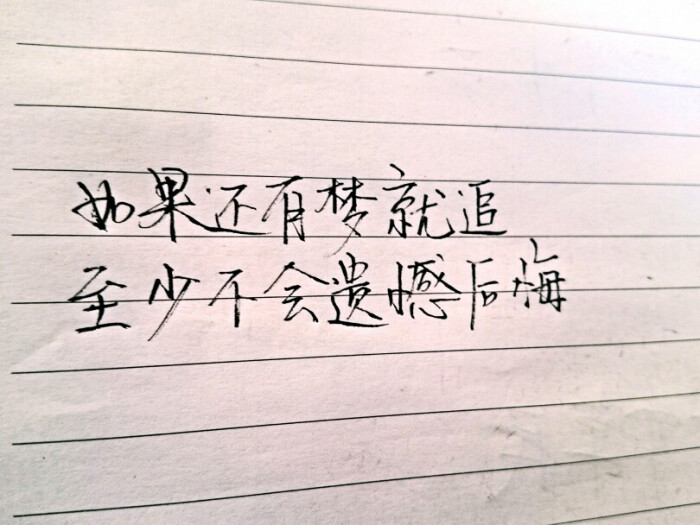 如果还有梦就追
至少不会遗憾后悔